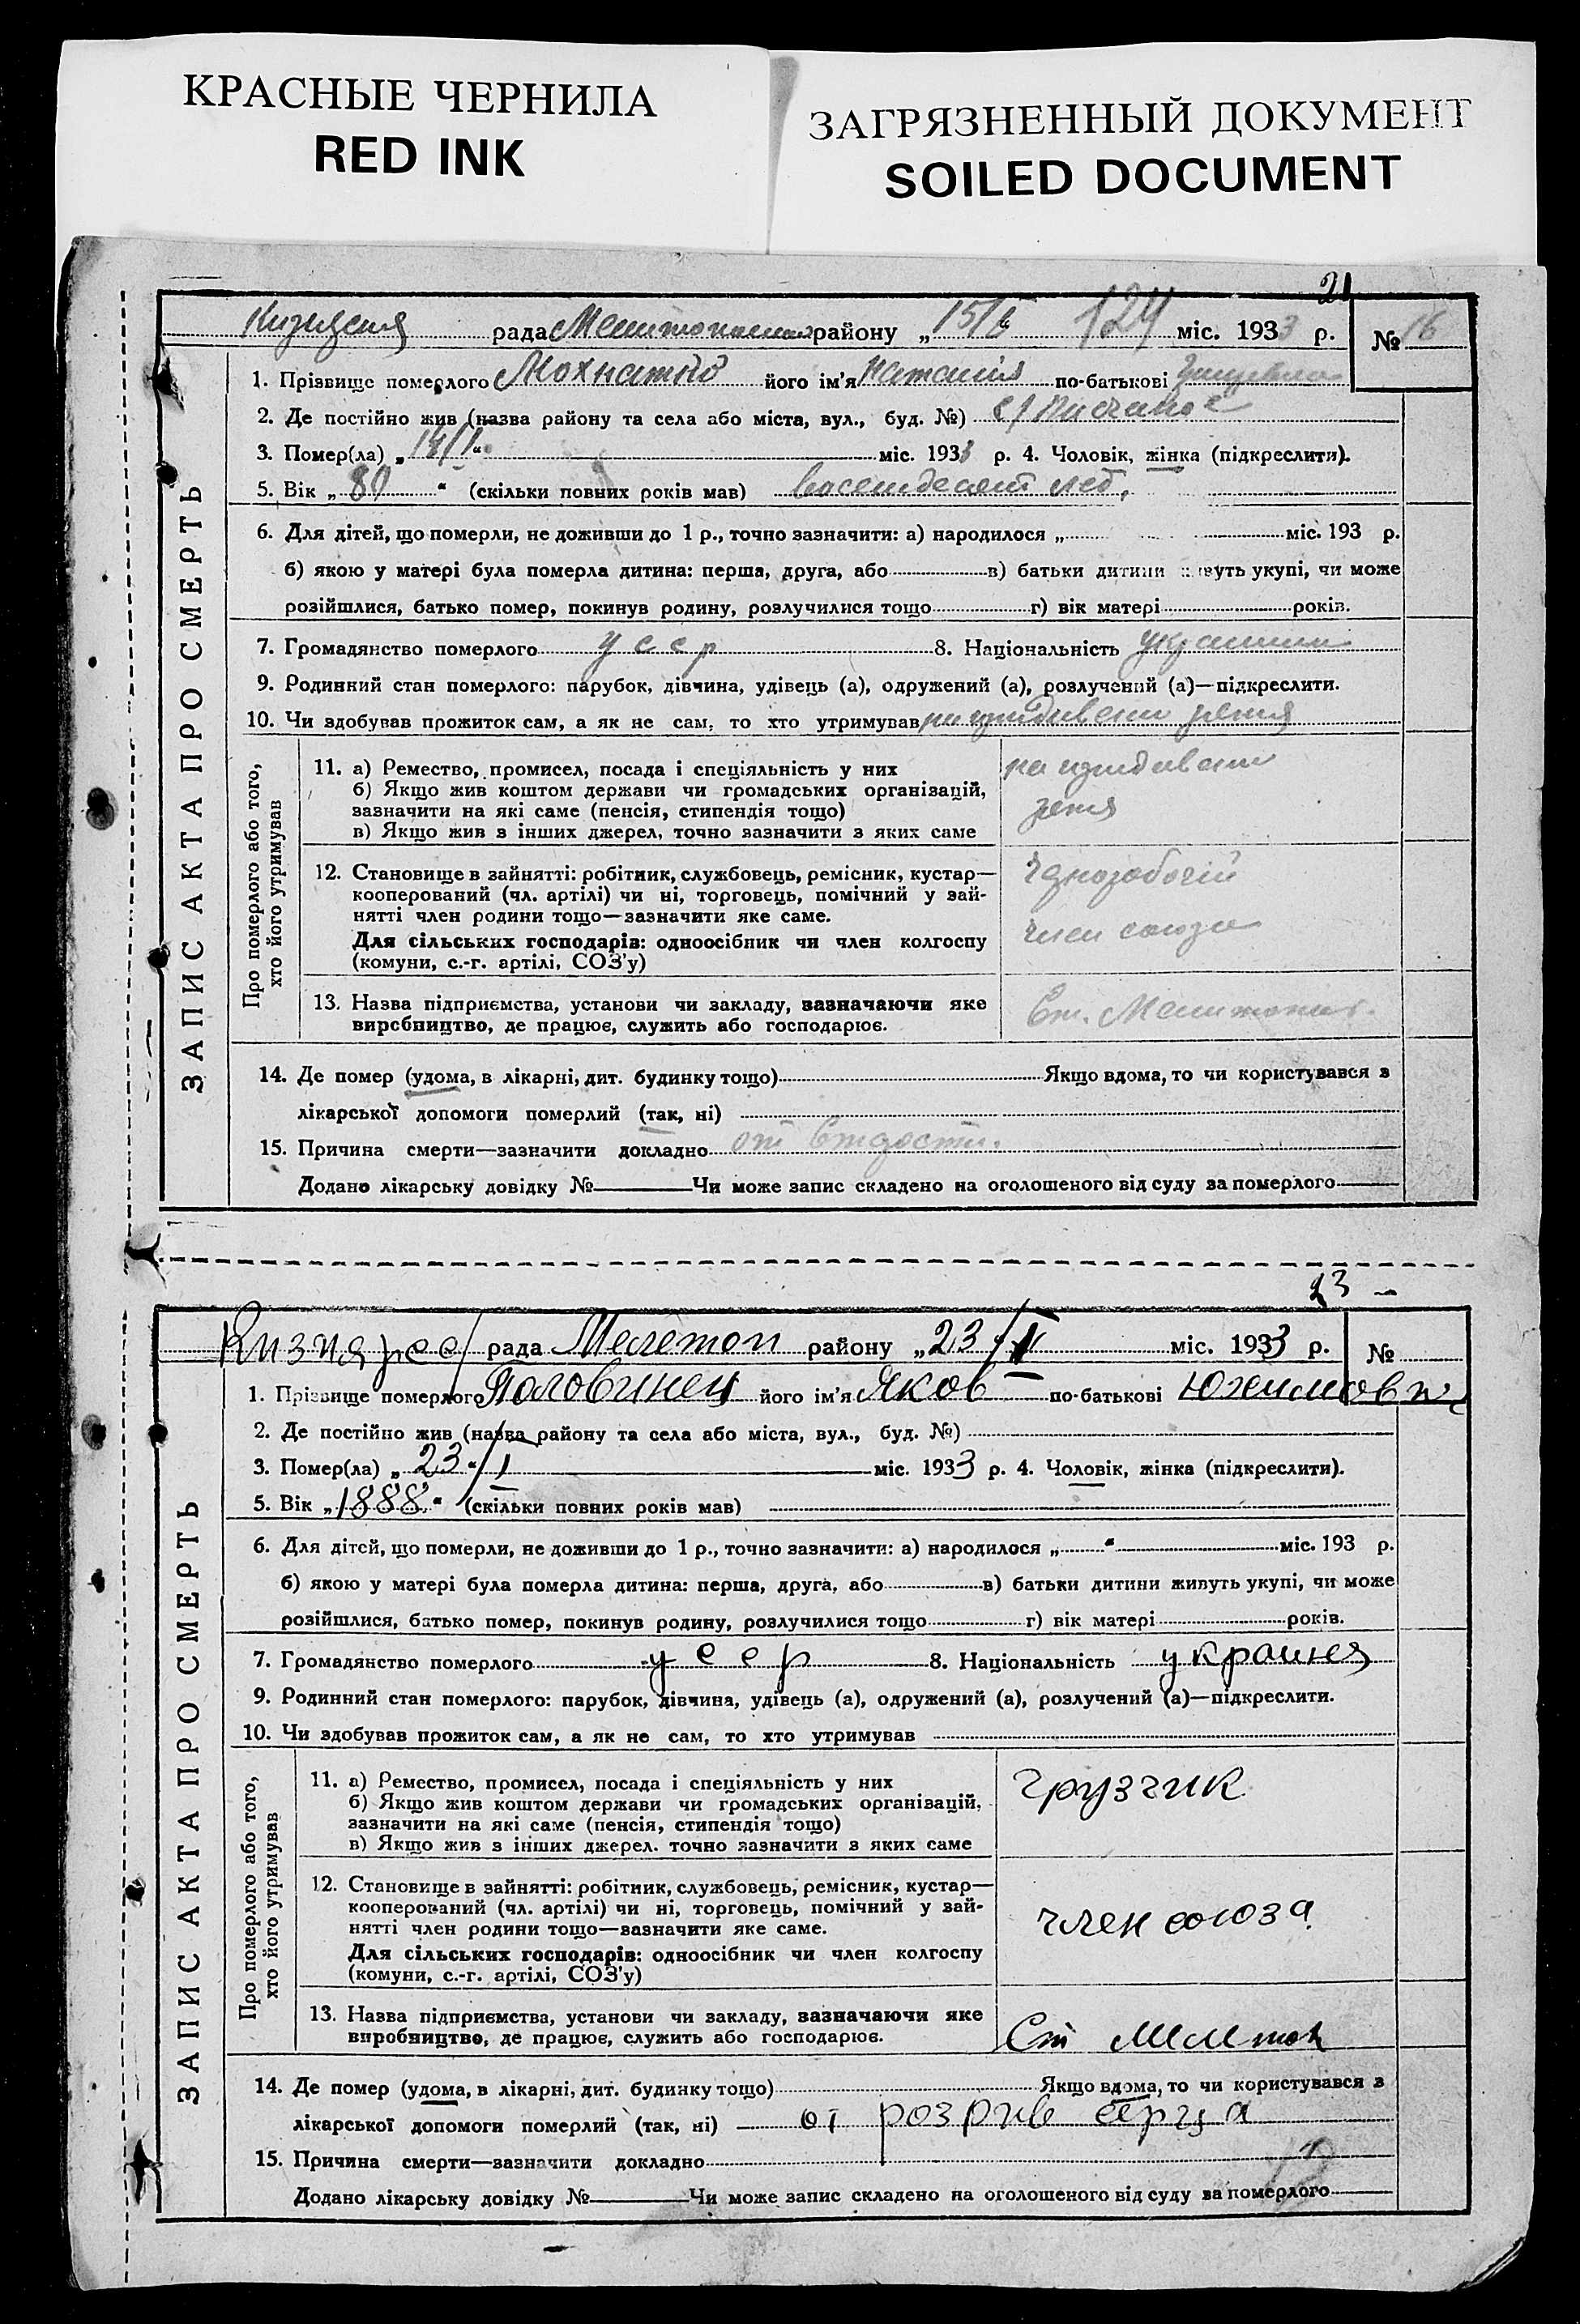 КРАСНЫЕ ЧЕРНИЛА
RED INK
ЗАГРЯЗНЕННЫЙ ДОКУМЕНТ
SOILED DOCUMENT
21
рада району „15/ 124 міс. 1933 р. № 16
1. Прізвище померлого його ім'я Наталія по-батькові
2. Де постійно жив (назва району та села або міста, вул., буд. №)
3. Помер(ла) „ міс. 1933 р. 4. Чоловік, жінка (підкреслити).
5. Вік „ 80 “ (скільки повних років мав) восемдесят лет.
6. Для дітей, що померли, не доживши до 1 р., точно зазначити: а) народилося „ міс. 193 р.
б) якою у матері була померла дитина: перша, друга, або в) батьки дитини живуть укупі, чи може
розійшлися, батько помер, покинув родину, розлучилися тощо г) вік матері років.
7. Громадянство померлого усср 8. Національність
9. Родинний стан померлого: парубок, дівчина, удівець (а), одружений (а), розлучений (а)—підкреслити.
10. Чи здобував прожиток сам, а як не сам, то хто утримував
ЗАПИС АКТА ПРО СМЕРТЬ
Про померлого або того,
хто його утримував
11. а) Ремество, промисел, посада і спеціяльність у них
б) Якщо жив коштом держави чи громадських організацій,
зазначити на які саме (пенсія, стипендія тощо)
в) Якщо жив з інших джерел, точно зазначити з яких саме
12. Становище в зайнятті: робітник, службовець, ремісник, кустар—
кооперований (чл. артілі) чи ні, торговець, помічний у зай-
нятті член родини тощо—зазначити яке саме.
Для сільських господарів: одноосібник чи член колгоспу
(комуни, с.-г. артілі, СОЗ'у)
член союза
13. Назва підприємства, установи чи закладу, зазначаючи яке
виробництво, де працює, служить або господарює.
Ст. Мелитополь.
14. Де помер (удома, в лікарні, дит. будинку тощо) Якщо вдома, то чи користувався з
лікарської допомоги померлий (так, ні)
15. Причина смерти—зазначити докладно от старости.
Додано лікарську довідку № Чи може запис складено на оголошеного від суду за померлого
23 –
рада Мелетоп району „23/II міс. 1933 р. №
1. Прізвище померлого Половинец його ім'я Яков по-батькові
2. Де постійно жив (назва району та села або міста, вул., буд. №)
3. Помер(ла) „ 23 “/I міс. 1933 р. 4. Чоловік, жінка (підкреслити).
5. Вік „ 1888 “ (скільки повних років мав)
6. Для дітей, що померли, не доживши до 1 р., точно зазначити: а) народилося „ “ міс. 193 р.
б) якою у матері була померла дитина: перша, друга, або в) батьки дитини живуть укупі, чи може
розійшлися, батько помер, покинув родину, розлучилися тощо г) вік матері років.
7. Громадянство померлого усср 8. Національність
9. Родинний стан померлого: парубок, дівчина, удівець (а), одружений (а), розлучений (а)—підкреслити.
10. Чи здобував прожиток сам, а як не сам, то хто утримував
ЗАПИС АКТА ПРО СМЕРТЬ
Про померлого або того,
хто його утримував
11. а) Ремество, промисел, посада і спеціяльність у них
б) Якщо жив коштом держави чи громадських організацій,
зазначити на які саме (пенсія, стипендія тощо)
в) Якщо жив з інших джерел. точно зазначити з яких саме
грузчик
12. Становище в зайнятті: робітник, службовець, ремісник, кустар—
кооперований (чл. артілі) чи ні, торговець, помічний у зай-
нятті член родини тощо—зазначити яке саме.
Для сільських господарів: одноосібник чи член колгоспу
(комуни, с.-г. артілі, СОЗ'у)
член союза
13. Назва підприємства, установи чи закладу, зазначаючи яке
виробництво, де працює, служить або господарює.
Ст Мелитоп
14. Де помер (удома, в лікарні, дит. будинку тощо) Якщо вдома, то чи користувався з
лікарської допомоги померлий (так, ні) от розрив серца
15. Причина смерти—зазначити докладно
Додано лікарську довідку № Чи може запис складено на оголошеного від суду за померлого